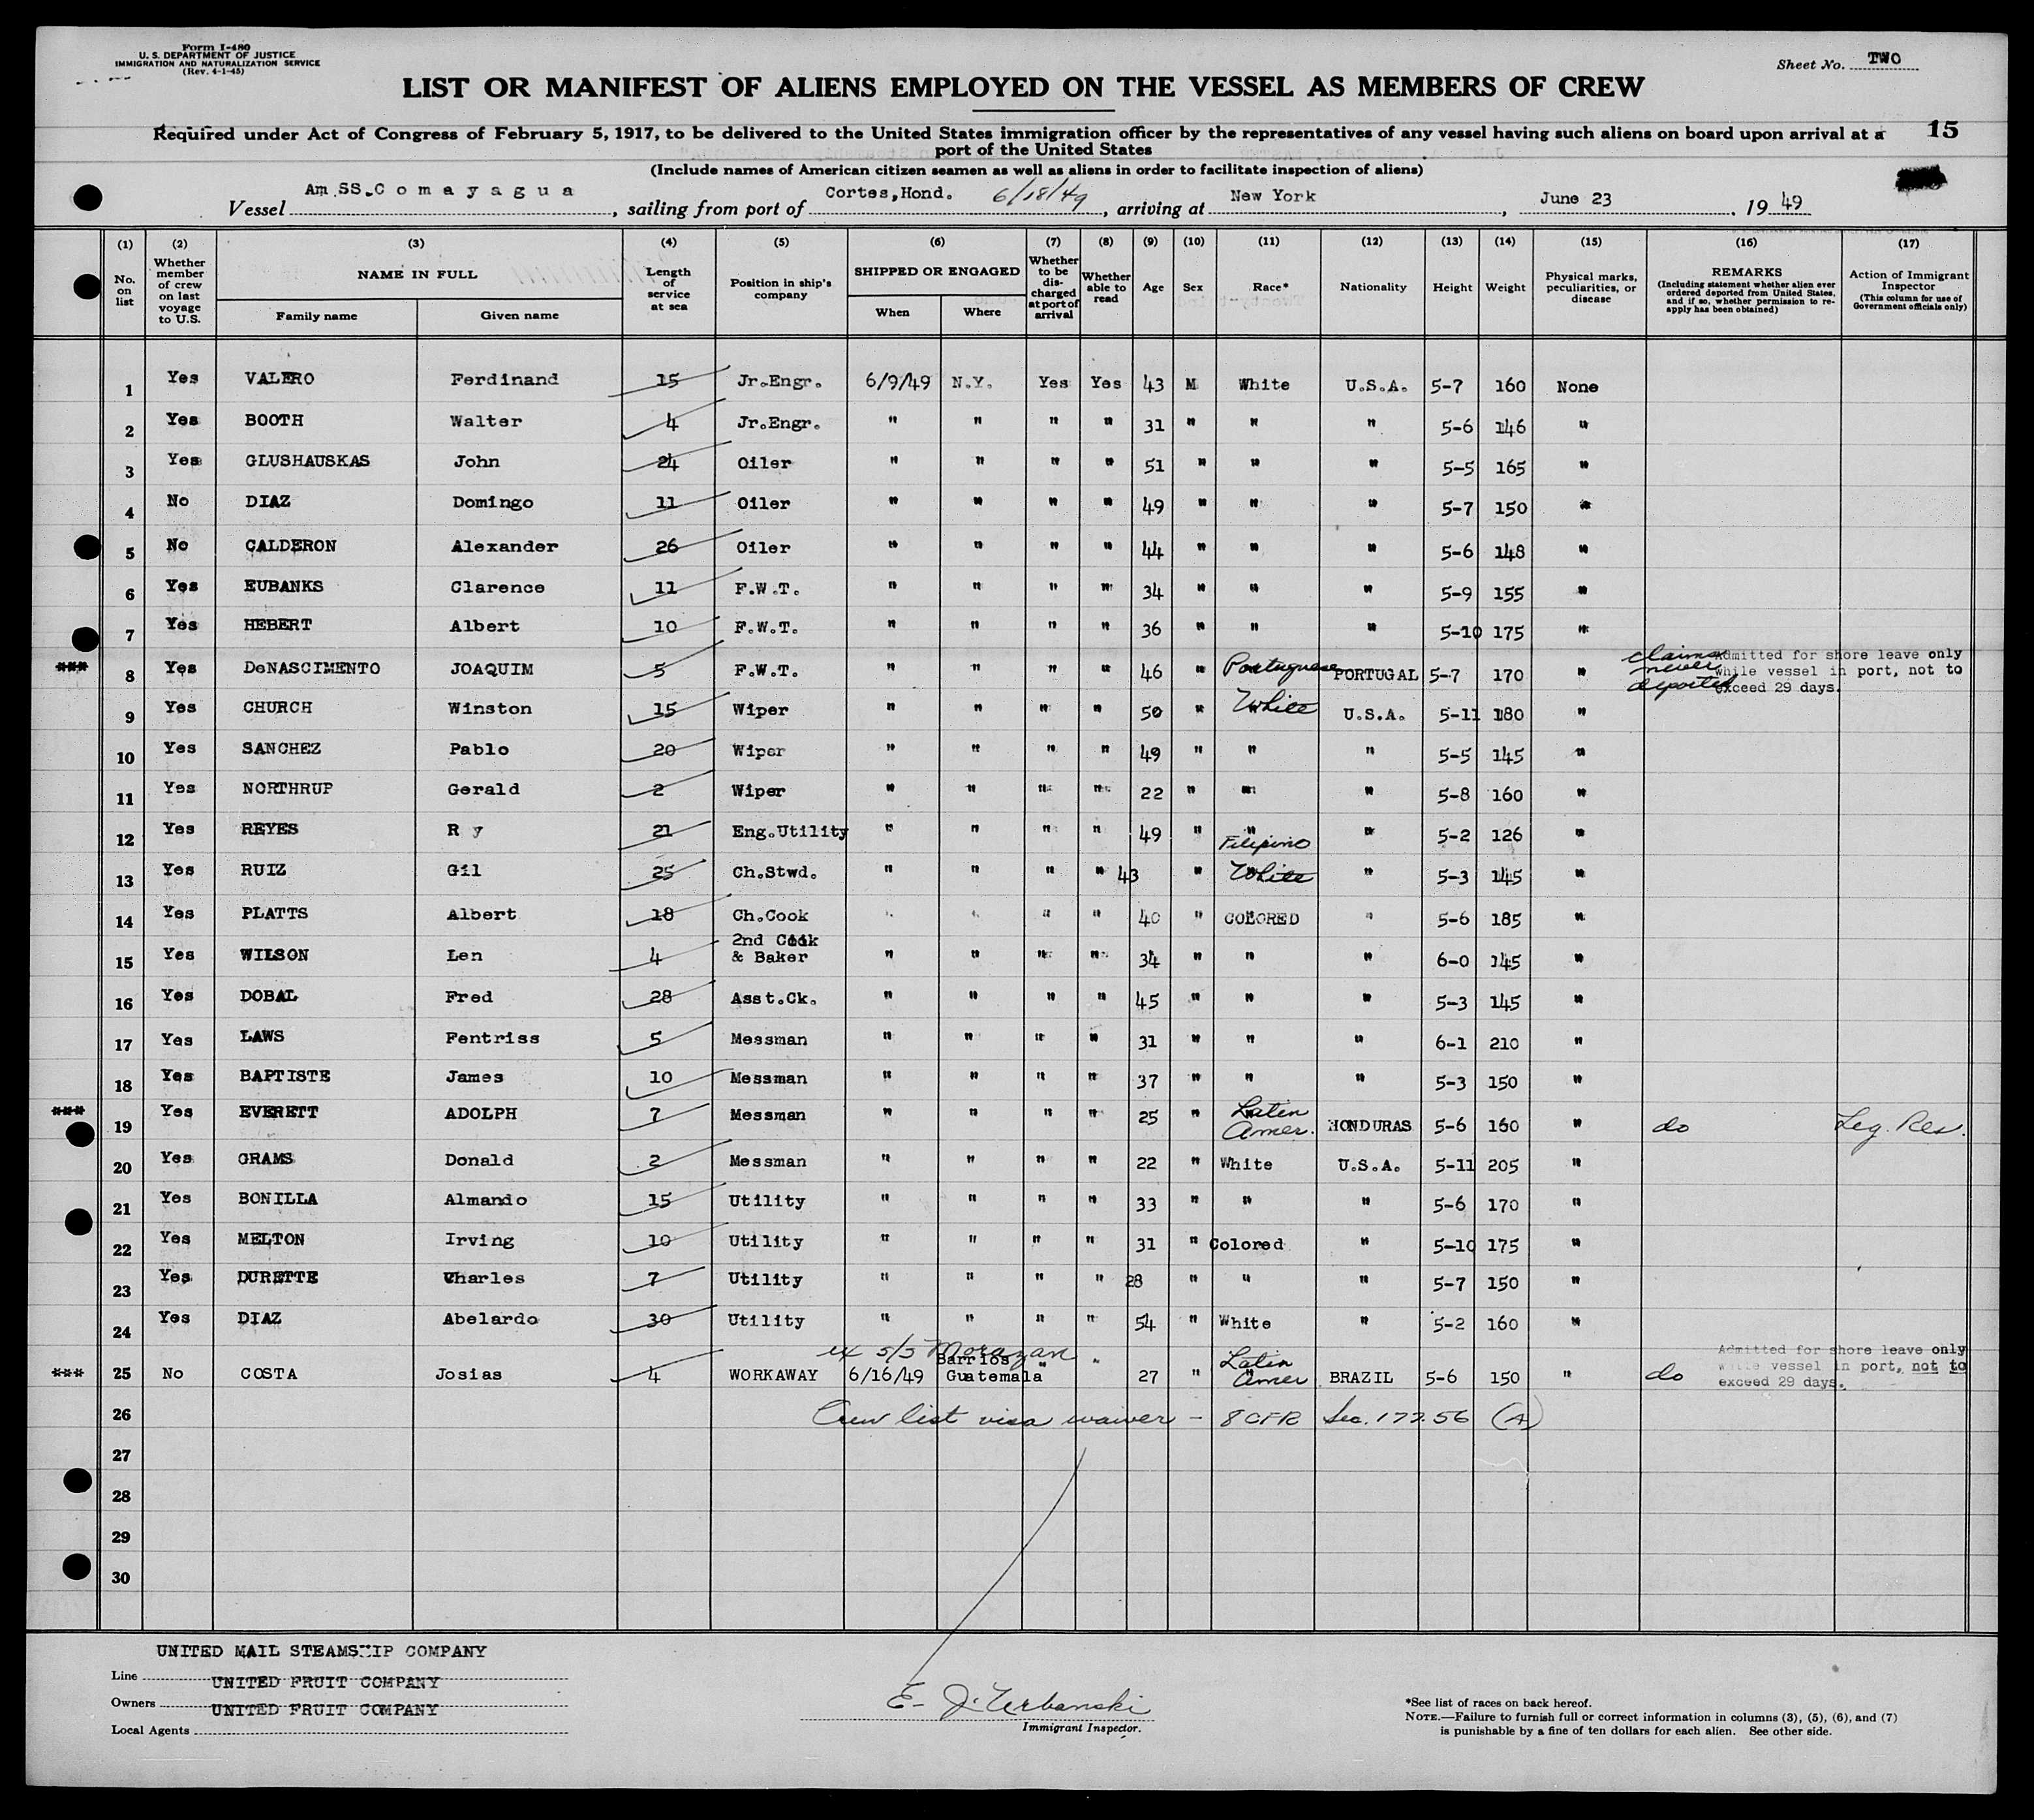 Form I-480
U. S. DEPARTMENT OF JUSTICE
IMMIGRATION AND NATURALIZATION SERVICE
(Rev. 4-1-45)
Sheet No. TWO
LIST OR MANIFEST OF ALIENS EMPLOYED ON THE VESSEL AS MEMBERS OF CREW
Required under Act of Congress of February 5, 1917, to be delivered to the United States immigration officer by the representatives of any vessel having such aliens on board upon arrival at a
port of the United States
15
(Include names of American citizen seamen as well as aliens in order to facilitate inspection of aliens)
Vessel Am SS. Comayagua, sailing from port of Cortes, Hond. 6/18/49, arriving at New York, June 23, 1949
(1) (2) (3) (4) (5) (6) (7) (8) (9) (10) (11) (12) (13) (14) (15) (16) (17)
No. on list
Whether member of crew on last voyage to U.S.
NAME IN FULL
Family name
Given name
Length of service at sea
Position in ship's company
SHIPPED OR ENGAGED
When
Where
Whether to be discharged at port of arrival
Whether able to read
Age
Sex
Race*
Nationality
Height
Weight
Physical marks, peculiarities, or disease
REMARKS
(Including statement whether alien ever ordered deported from United States, and if so, whether permission to reapply has been obtained)
Action of Immigrant Inspector
(This column for use of Government officials only)
1 Yes VALERO Ferdinand 15 Jr.Engr. 6/9/49 N.Y. Yes Yes 43 M White U.S.A. 5-7 160 None
2 Yes BOOTH Walter 4 Jr.Engr. " " " " 31 " " " 5-6 146 "
3 Yes GLUSHAUSKAS John 24 Oiler " " " " 51 " " " 5-5 165 "
4 No DIAZ Domingo 11 Oiler " " " " 49 " " " 5-7 150 "
5 No CALDERON Alexander 26 Oiler " " " " 44 " " " 5-6 148 "
6 Yes EUBANKS Clarence 11 F.W.T. " " " " 34 " " " 5-9 155 "
7 Yes HEBERT Albert 10 F.W.T. " " " " 36 " " " 5-10 175 "
*** 8 Yes DeNASCIMENTO JOAQUIM 5 F.W.T. " " " " 46 " Portuguese PORTUGAL 5-7 170 " claims never deported Admitted for shore leave only while vessel in port, not to exceed 29 days.
9 Yes CHURCH Winston 15 Wiper " " " " 50 " White U.S.A. 5-11 180 "
10 Yes SANCHEZ Pablo 20 Wiper " " " " 49 " " " 5-5 145 "
11 Yes NORTHRUP Gerald 2 Wiper " " " " 22 " " " 5-8 160 "
12 Yes REYES R y 21 Eng.Utility " " " " 49 " " Filipino " 5-2 126 "
13 Yes RUIZ Gil 25 Ch.Stwd. " " " " 43 " White " 5-3 145 "
14 Yes PLATTS Albert 18 Ch.Cook " " " " 40 " COLORED " 5-6 185 "
15 Yes WILSON Len 4 2nd Cook & Baker " " " " 34 " " " 6-0 145 "
16 Yes DOBAL Fred 28 Asst.Ck. " " " " 45 " " " 5-3 145 "
17 Yes LAWS Fentriss 5 Messman " " " " 31 " " " 6-1 210 "
18 Yes BAPTISTE James 10 Messman " " " " 37 " " " 5-3 150 "
*** 19 Yes EVERETT ADOLPH 7 Messman " " " " 25 " Latin Amer. HONDURAS 5-6 160 " do Leg. Res.
20 Yes GRAMS Donald 2 Messman " " " " 22 " White U.S.A. 5-11 205 "
21 Yes BONILLA Almando 15 Utility " " " " 33 " " " 5-6 170 "
22 Yes MELTON Irving 10 Utility " " " " 31 " Colored " 5-10 175 "
23 Yes DURETTE Charles 7 Utility " " " " 28 " " " 5-7 150 "
24 Yes DIAZ Abelardo 30 Utility " " " " 54 " White " 5-2 160 "
ex S/S Morazan
*** 25 No COSTA Josias 4 WORKAWAY 6/16/49 Barrios Guatemala " " 27 " Latin Amer BRAZIL 5-6 150 " do Admitted for shore leave only while vessel in port, not to exceed 29 days.
26 Crew list visa waiver - 8 CFR Sec. 177.56 (A)
27
28
29
30
UNITED MAIL STEAMSHIP COMPANY
Line UNITED FRUIT COMPANY
Owners UNITED FRUIT COMPANY
Local Agents
E. J. Urbanski
Immigrant Inspector.
*See list of races on back hereof.
NOTE.—Failure to furnish full or correct information in columns (3), (5), (6), and (7)
is punishable by a fine of ten dollars for each alien. See other side.